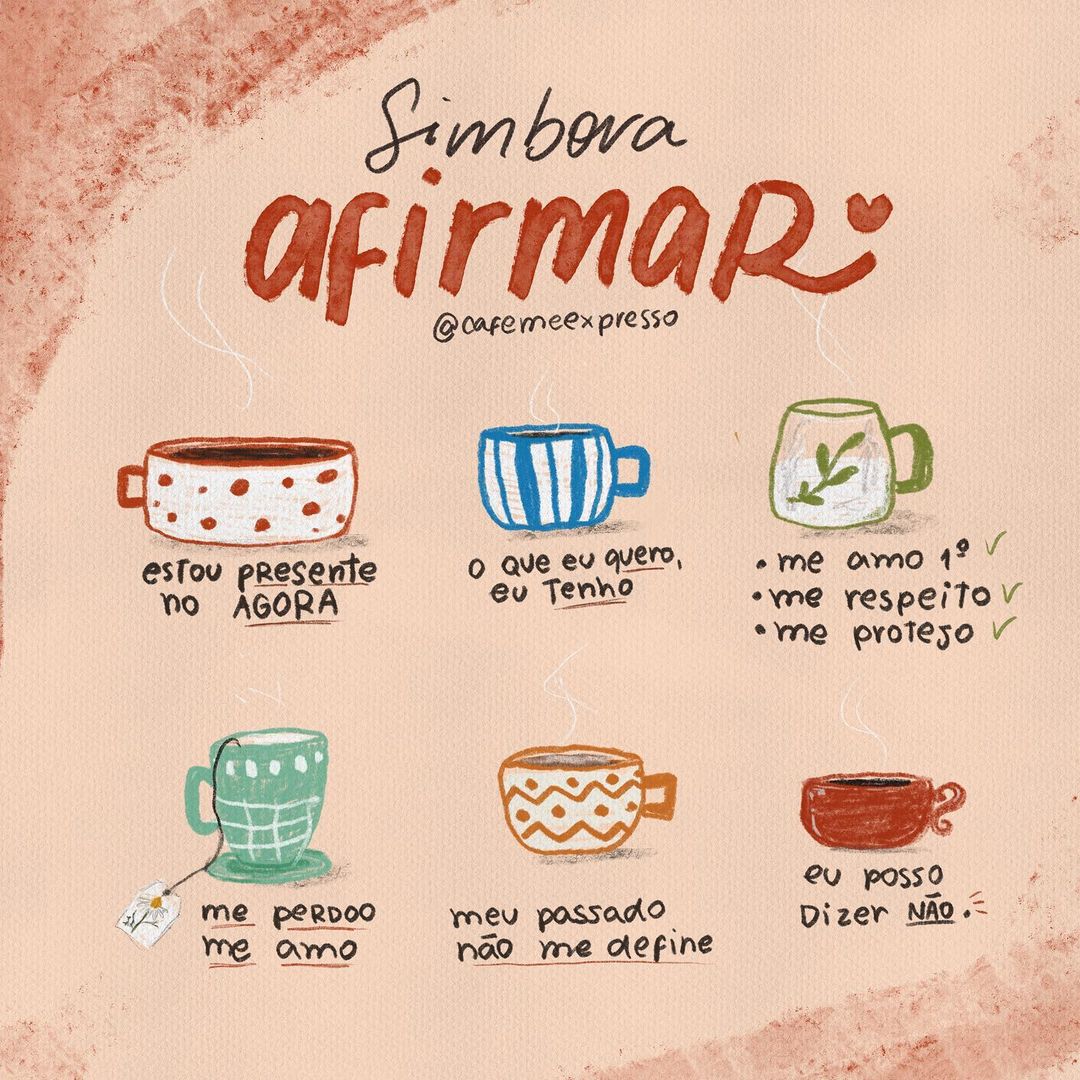 Simbora
afirmar
@cafemeexpresso
estou presente
no AGORA
o que eu quero,
eu Tenho
• me amo 1º ✓
• me respeito ✓
• me protejo ✓
me perdoo
me amo
meu passado
não me define
eu posso
Dizer NÃO.